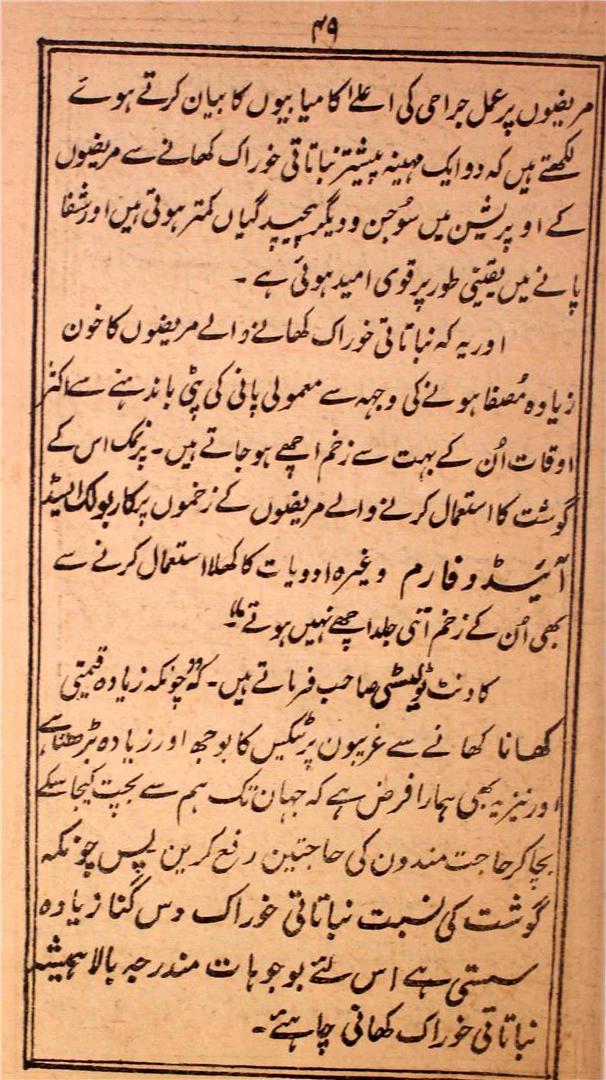 ۴۹
مریضوں پر عمل جراحی کی اعلےٰ کامیابیوں کا بیان کرتے ہوئے
لکھتے ہیں کہ دو ایک مہینہ پیشتر نباتاتی خوراک کھانے سے مریضوں
کے اوپریشن میں سُوجن و دیگر پیچیدگیاں کمتر ہوتی ہیں اور شفا
پانے میں یقینی طور پر قوی امید ہوتی ہے۔
اور یہ کہ نباتاتی خوراک کھانے والے مریضوں کا خون
زیادہ مُصفا ہونے کی وجہہ سے معمولی پانی کی پٹی باندہنے سے اکثر
اوقات اُن کے بہت سے زخم اچھے ہو جاتے ہیں۔ برعکس اس کے
گوشت کا استعمال کرنے والے مریضوں کے زخموں پر کاربولک ایسڈ
آئیڈوفارم وغیرہ ادویات کا کھلا استعمال کرنے سے
بھی اُن کے زخم اتنی جلد اچھے نہیں ہوتے"۔
کاونٹ ٹولسٹی صاحب فرماتے ہیں۔ کہ "چونکہ زیادہ قیمتی
کھانا کھانے سے غریبون پر ٹیکس کا بوجھ اور زیادہ بڑھتا ہے
اور نیز یہ بھی ہمارا فرض ہے کہ جہان تک ہم سے بچت کیجا سکے
بچا کر حاجت مندون کی حاجتین رفع کرین پس چونکہ
گوشت کی نسبت نباتاتی خوراک دس گنا زیادہ
سستی ہے اس لئے بوجوہات مندرجہ بالا ہمیشہ
نباتاتی خوراک کھانی چاہئے۔